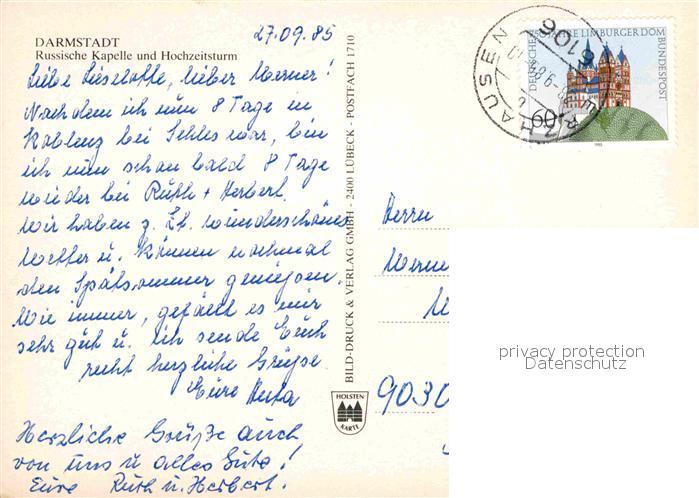 27.09.85
DARMSTADT
Russische Kapelle und Hochzeitsturm
Liebe Lieselotte, lieber Werner!
Nachdem ich nun 8 Tage in
Koblenz bei war, bin
ich nun schon bald 8 Tage
wieder bei Ruth + Herbert.
Wir haben z. Zt. wunderschönes
Wetter u. können nochmal
den Spätsommer genießen.
Wie immer, gefällt es mir
sehr gut u. ich sende Euch
recht herzliche Grüße
Eure Herta
Herzliche Grüße auch
von uns u alles Gute!
Eure Ruth u. Herbert.
BILD-DRUCK & VERLAG GMBH - 2400 LÜBECK - POSTFACH 1710
HOLSTEN
KARTE
750 JAHRE LIMBURGER DOM
DEUTSCHE BUNDESPOST
60
1985
6106
HAUSEN
Herrn
Werner
9030
privacy protection
Datenschutz